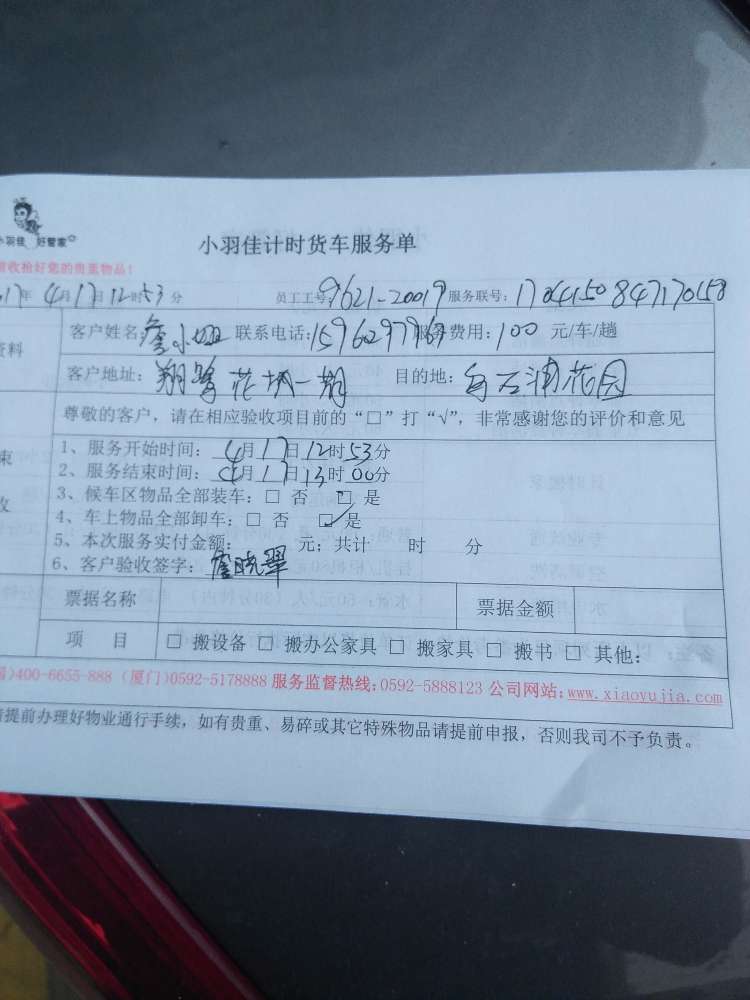 小羽佳 好管家
小羽佳计时货车服务单
收拾好您的贵重物品！
17年 4月17日12时53分 员工工号:9621-20019 服务联号: 1704150847170158
资料
客户姓名:詹小姐 联系电话:1596297796 服务费用: 100 元/车/趟
客户地址: 翔鹭花城一期 目的地: 白石浦花园
尊敬的客户，请在相应验收项目前的“□”打“√”，非常感谢您的评价和意见
1、服务开始时间: 4月17日12时53分
2、服务结束时间: 4月17日13时00分
3、候车区物品全部装车: □ 否 □ 是
4、车上物品全部卸车: □ 否 □ 是
5、本次服务实付金额: 元; 共计 时 分
6、客户验收签字: 詹晓翠
票据名称 票据金额
项 目 □ 搬设备 □ 搬办公家具 □ 搬家具 □ 搬书 □ 其他:
)400-6655-888 (厦门)0592-5178888 服务监督热线:0592-5888123 公司网站:www.xiaoyujia.com
请提前办理好物业通行手续，如有贵重、易碎或其它特殊物品请提前申报，否则我司不予负责。